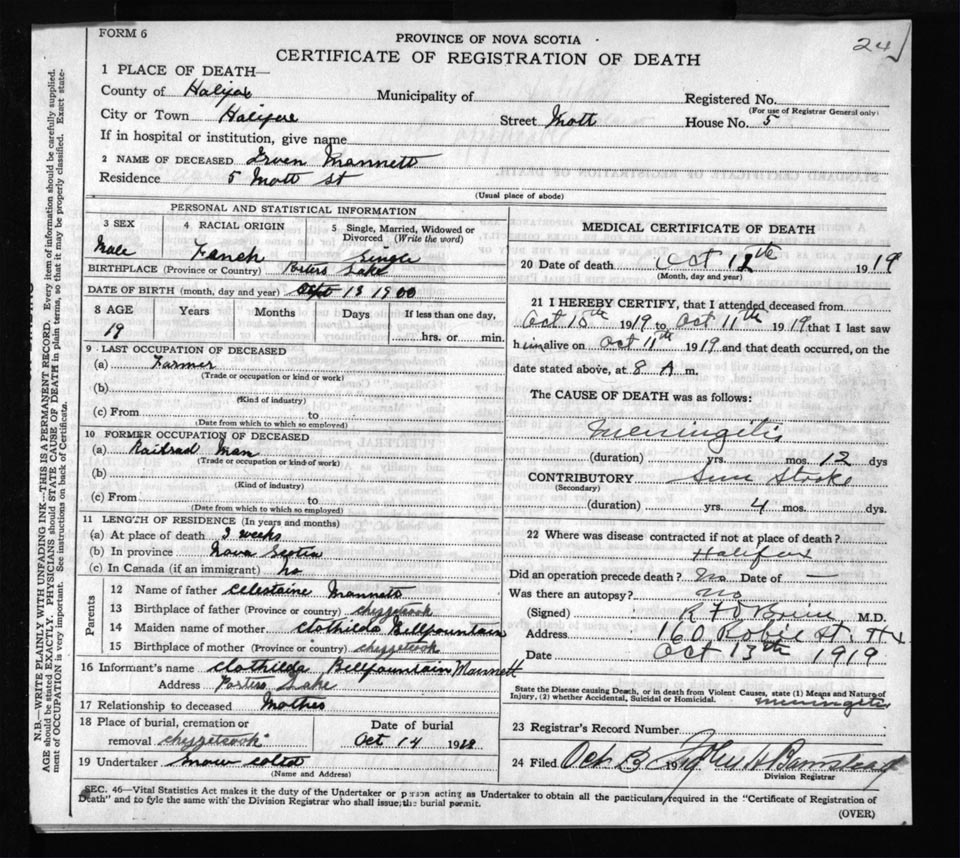 FORM 6
PROVINCE OF NOVA SCOTIA
24
CERTIFICATE OF REGISTRATION OF DEATH
1 PLACE OF DEATH—
County of Halifax Municipality of Registered No.
(For use of Registrar General only)
City or Town Halifax Street Mott House No. 5
If in hospital or institution, give name
2 NAME OF DECEASED Irven Mannett
Residence 5 Mott St
(Usual place of abode)
PERSONAL AND STATISTICAL INFORMATION
3 SEX 4 RACIAL ORIGIN 5 Single, Married, Widowed or Divorced (Write the word)
Male French Single
BIRTHPLACE (Province or Country) Porters Lake
DATE OF BIRTH (month, day and year) 13 1900
8 AGE Years Months Days If less than one day,
19 hrs. or min.
9 LAST OCCUPATION OF DECEASED
(a) Farmer
(Trade or occupation or kind or work)
(b)
(Kind of industry)
(c) From to
(Date from which to which so employed)
10 FORMER OCCUPATION OF DECEASED
(a) Railroad Man
(Trade or occupation or kind of work)
(b)
(Kind of industry)
(c) From to
(Date from which to which so employed)
11 LENGTH OF RESIDENCE (In years and months)
(a) At place of death 3 weeks
(b) In province Nova Scotia
(c) In Canada (if an immigrant) no
Parents
12 Name of father Celestaine Mannett
13 Birthplace of father (Province or country) chezzetcook
14 Maiden name of mother Clothilda Bellfountain
15 Birthplace of mother (Province or country) chezzetcook
16 Informant's name Clothilda Bellfountain Mannett
Address Porters Lake
17 Relationship to deceased Mother
18 Place of burial, cremation or removal chezzetcook Date of burial
Oct 14 19
19 Undertaker Snow
(Name and Address)
MEDICAL CERTIFICATE OF DEATH
20 Date of death Oct 12th 1919
(Month, day and year)
21 I HEREBY CERTIFY, that I attended deceased from
Oct 10th 1919 to Oct 11th 1919 that I last saw
him alive on Oct 11th 1919 and that death occurred, on the
date stated above, at 8 A m.
The CAUSE OF DEATH was as follows:
Meningitis
(duration) yrs. mos. 12 dys
CONTRIBUTORY Sun Stroke
(Secondary)
(duration) yrs. 4 mos. dys.
22 Where was disease contracted if not at place of death?
Halifax
Did an operation precede death? No Date of —
Was there an autopsy? no
(Signed) M.D.
Address 160 Robie St. Hx
Date Oct 13th 1919
State the Disease causing Death, or in death from Violent Causes, state (1) Means and Nature of
Injury, (2) whether Accidental, Suicidal or Homicidal. meningitis
23 Registrar's Record Number
24 Filed Oct 13 1919 John H Barnstead
Division Registrar
SEC. 46—Vital Statistics Act makes it the duty of the Undertaker or person acting as Undertaker to obtain all the particulars required in the "Certificate of Registration of
Death" and to file the same with the Division Registrar who shall issue the burial permit.
(OVER)
N.B.—WRITE PLAINLY WITH UNFADING INK—THIS IS A PERMANENT RECORD. Every item of information should be carefully supplied.
AGE should be stated EXACTLY. PHYSICIANS should STATE CAUSE OF DEATH in plain terms, so that it may be properly classified. Exact state-
ment of OCCUPATION is very important. See instructions on back of Certificate.